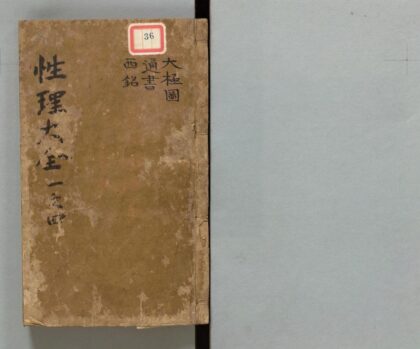 36
大極圖
通書
西銘
性理大全 一之四